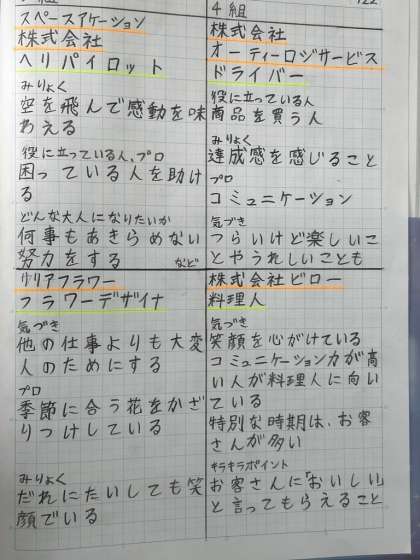 スペースアケーション
株式会社
ヘリパイロット
みりょく
空を飛んで感動を味
わえる
役に立っている人、プロ
困っている人を助け
る
どんな大人になりたいか
何事もあきらめない
努力をする
など
4組
株式会社
オーティーロジサービス
ドライバー
役に立っている人
商品を買う人
みりょく
達成感を感じること
プロ
コミュニケーション
気づき
つらいけど楽しいこ
とやうれしいことも
リリアフラワー
フラワーデザイナ
気づき
他の仕事よりも大変
人のためにする
プロ
季節に合う花をかざ
りつけしている
みりょく
だれにたいしても笑
顔でいる
株式会社ビロー
料理人
気づき
笑顔を心がけている
コミュニケーション力が高
い人が料理人に向い
ている
特別な時期は、お客
さんが多い
キラキラポイント
お客さんに「おいしい」
と言ってもらえること